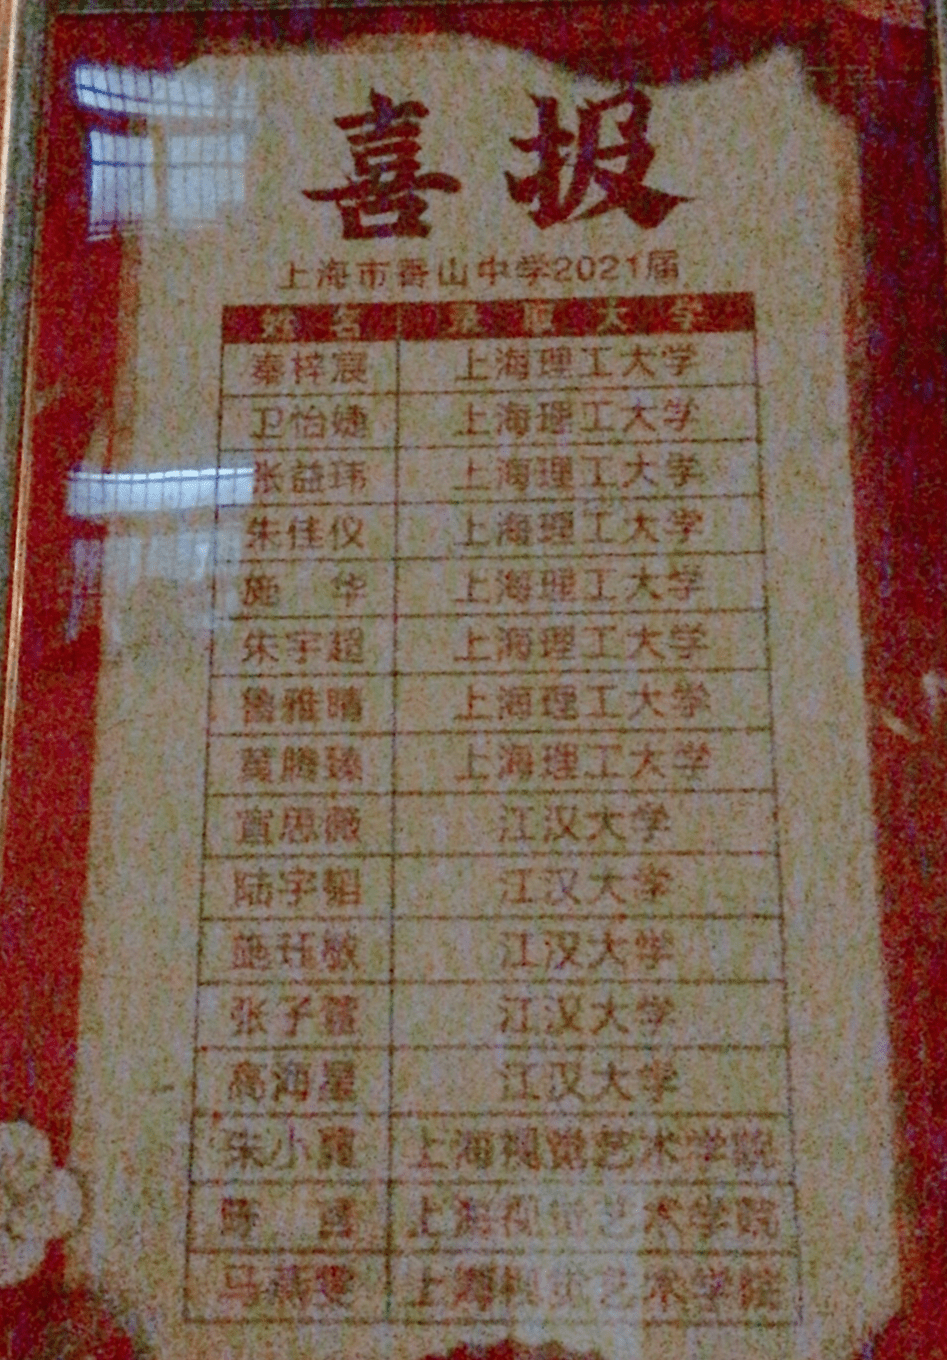 喜报
上海市香山中学2021届
姓名 录取大学
秦梓宸 上海理工大学
卫怡婕 上海理工大学
张益玮 上海理工大学
朱佳仪 上海理工大学
施华 上海理工大学
朱宇超 上海理工大学
鲁雅晴 上海理工大学
黄腾臻 上海理工大学
宣思薇 江汉大学
陆宇韬 江汉大学
施珏敏 江汉大学
张子萱 江汉大学
高海星 江汉大学
朱小 上海视觉艺术学院
陈 上海视觉艺术学院
马 上海视觉艺术学院